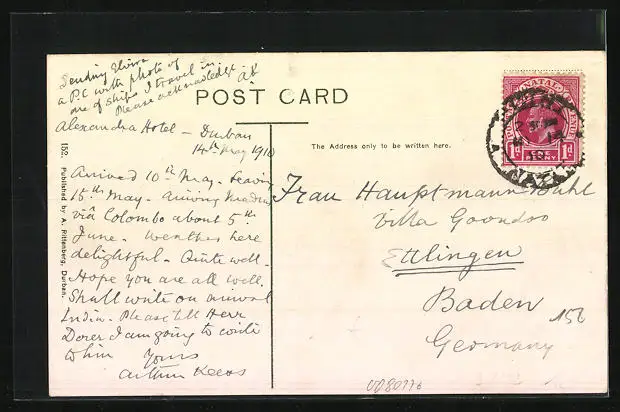 Sending Elvira
a P.C with photo of
one of ships I travel in
Please acknowledge it
POST CARD
Alexandra Hotel - Durban
14th May 1910
The Address only to be written here.
Arrived 10th May. Leaving
15th May - arriving Madras
via Colombo about 5th
June. Weather here
delightful. Quite well.
Hope you are all well.
Shall write on arrival
India. Please tell Herr
Dorer I am going to write
to him Yours
Arthur Keess
152. Published by A. Rittenberg, Durban.
NATAL
ONE PENNY
1d 1d
NATAL
Frau Hauptmann Buhl
Villa
Ettlingen
Baden
Germany
156